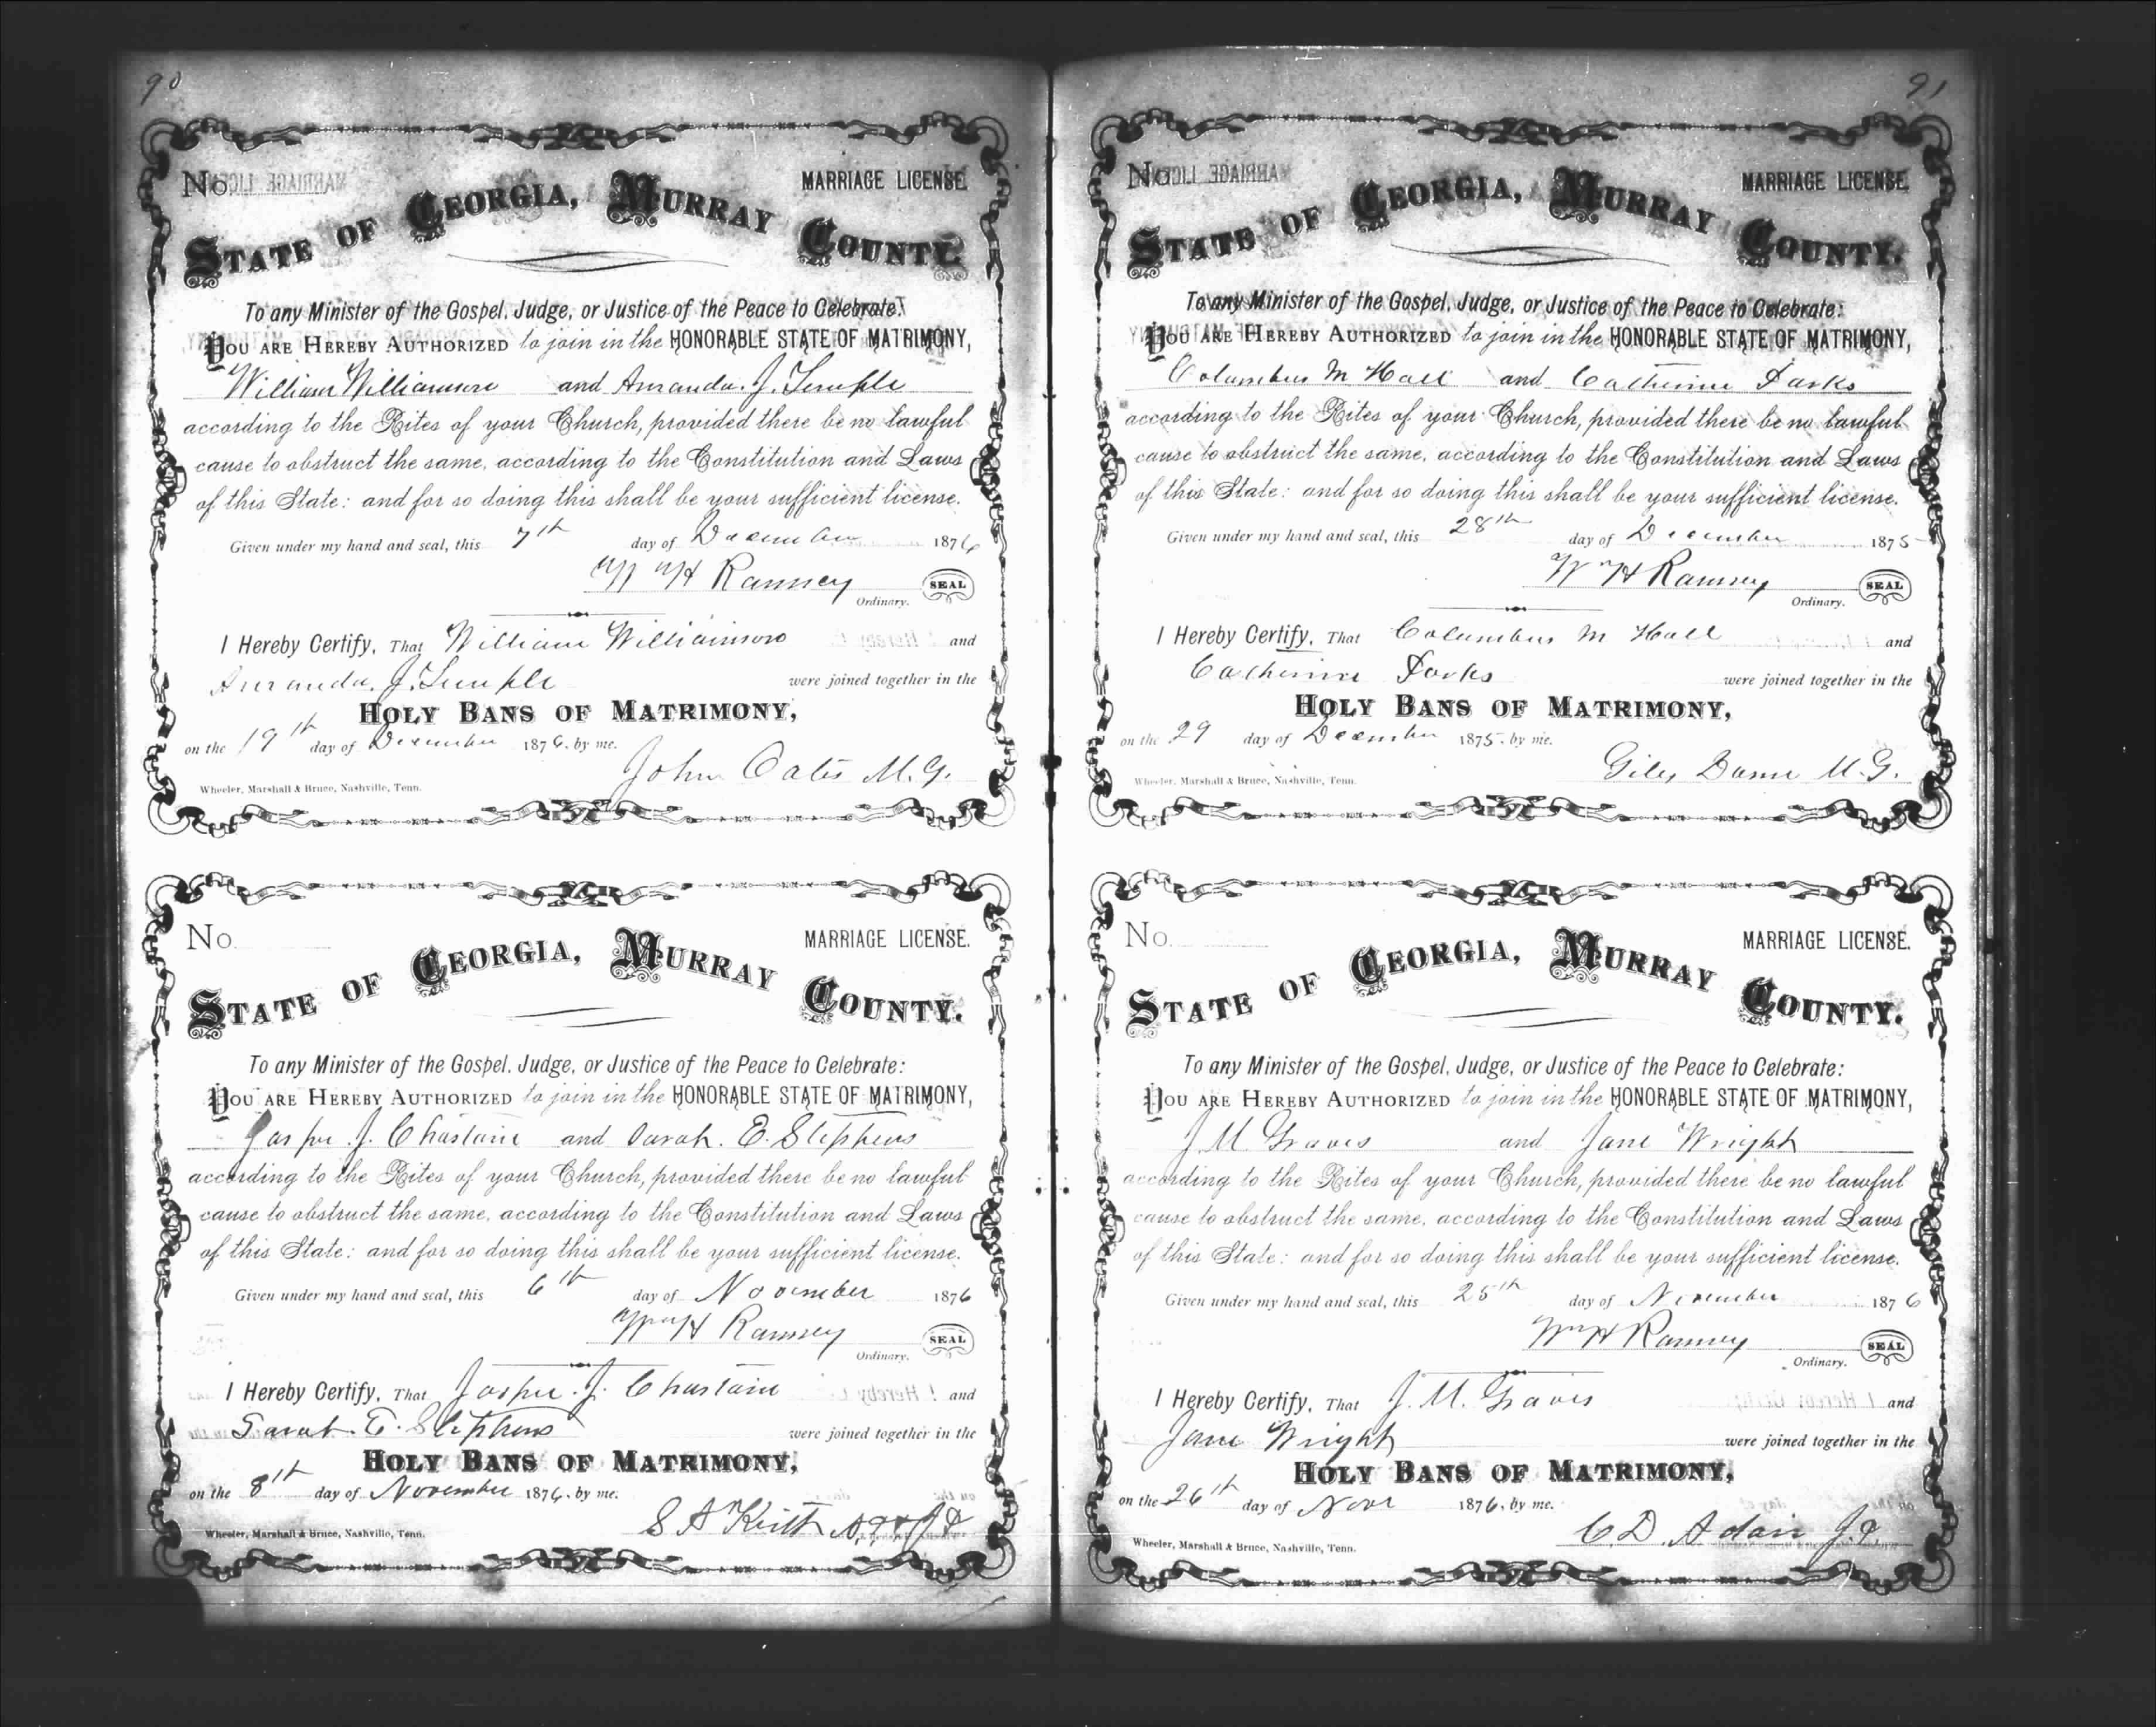 90
No. MARRIAGE LICENSE.
STATE OF GEORGIA, MURRAY COUNTY.
To any Minister of the Gospel, Judge, or Justice of the Peace to Celebrate:
YOU ARE HEREBY AUTHORIZED to join in the HONORABLE STATE OF MATRIMONY,
William Williamson and Amanda. J. Temple
according to the Rites of your Church, provided there be no lawful
cause to obstruct the same, according to the Constitution and Laws
of this State: and for so doing this shall be your sufficient license.
Given under my hand and seal, this 7th day of December 1876
Wm H Ramsey SEAL
Ordinary.
I Hereby Certify, That William Williamson and
Amanda. J. Temple were joined together in the
HOLY BANS OF MATRIMONY,
on the 19th day of December 1876, by me.
John Oates M.G.
Wheeler, Marshall & Bruce, Nashville, Tenn.
No. MARRIAGE LICENSE.
STATE OF GEORGIA, MURRAY COUNTY.
To any Minister of the Gospel, Judge, or Justice of the Peace to Celebrate:
YOU ARE HEREBY AUTHORIZED to join in the HONORABLE STATE OF MATRIMONY,
Jasper. J. Chastain and Sarah. E. Stephens
according to the Rites of your Church, provided there be no lawful
cause to obstruct the same, according to the Constitution and Laws
of this State: and for so doing this shall be your sufficient license.
Given under my hand and seal, this 6th day of November 1876
Wm H Ramsey SEAL
Ordinary.
I Hereby Certify, That Jasper. J. Chastain and
Sarah. E. Stephens were joined together in the
HOLY BANS OF MATRIMONY,
on the 8th day of November 1876, by me.
S A Keith
Wheeler, Marshall & Bruce, Nashville, Tenn.
91
No. MARRIAGE LICENSE.
STATE OF GEORGIA, MURRAY COUNTY.
To any Minister of the Gospel, Judge, or Justice of the Peace to Celebrate:
YOU ARE HEREBY AUTHORIZED to join in the HONORABLE STATE OF MATRIMONY,
Columbus M Hall and Catherine Parks
according to the Rites of your Church, provided there be no lawful
cause to obstruct the same, according to the Constitution and Laws
of this State: and for so doing this shall be your sufficient license.
Given under my hand and seal, this 28th day of December 1875
W H Ramsey SEAL
Ordinary.
I Hereby Certify, That Columbus M Hall and
Catherine Parks were joined together in the
HOLY BANS OF MATRIMONY,
on the 29 day of December 1875, by me.
Giles Dunn M.G.
Wheeler, Marshall & Bruce, Nashville, Tenn.
No. MARRIAGE LICENSE.
STATE OF GEORGIA, MURRAY COUNTY.
To any Minister of the Gospel, Judge, or Justice of the Peace to Celebrate:
YOU ARE HEREBY AUTHORIZED to join in the HONORABLE STATE OF MATRIMONY,
J. M. Graves and Jane Wright
according to the Rites of your Church, provided there be no lawful
cause to obstruct the same, according to the Constitution and Laws
of this State: and for so doing this shall be your sufficient license.
Given under my hand and seal, this 25th day of November 1876
Wm H Ramsey SEAL
Ordinary.
I Hereby Certify, That J. M. Graves and
Jane Wright were joined together in the
HOLY BANS OF MATRIMONY,
on the 26th day of Novr 1876, by me.
C. D. Adair J.P.
Wheeler, Marshall & Bruce, Nashville, Tenn.